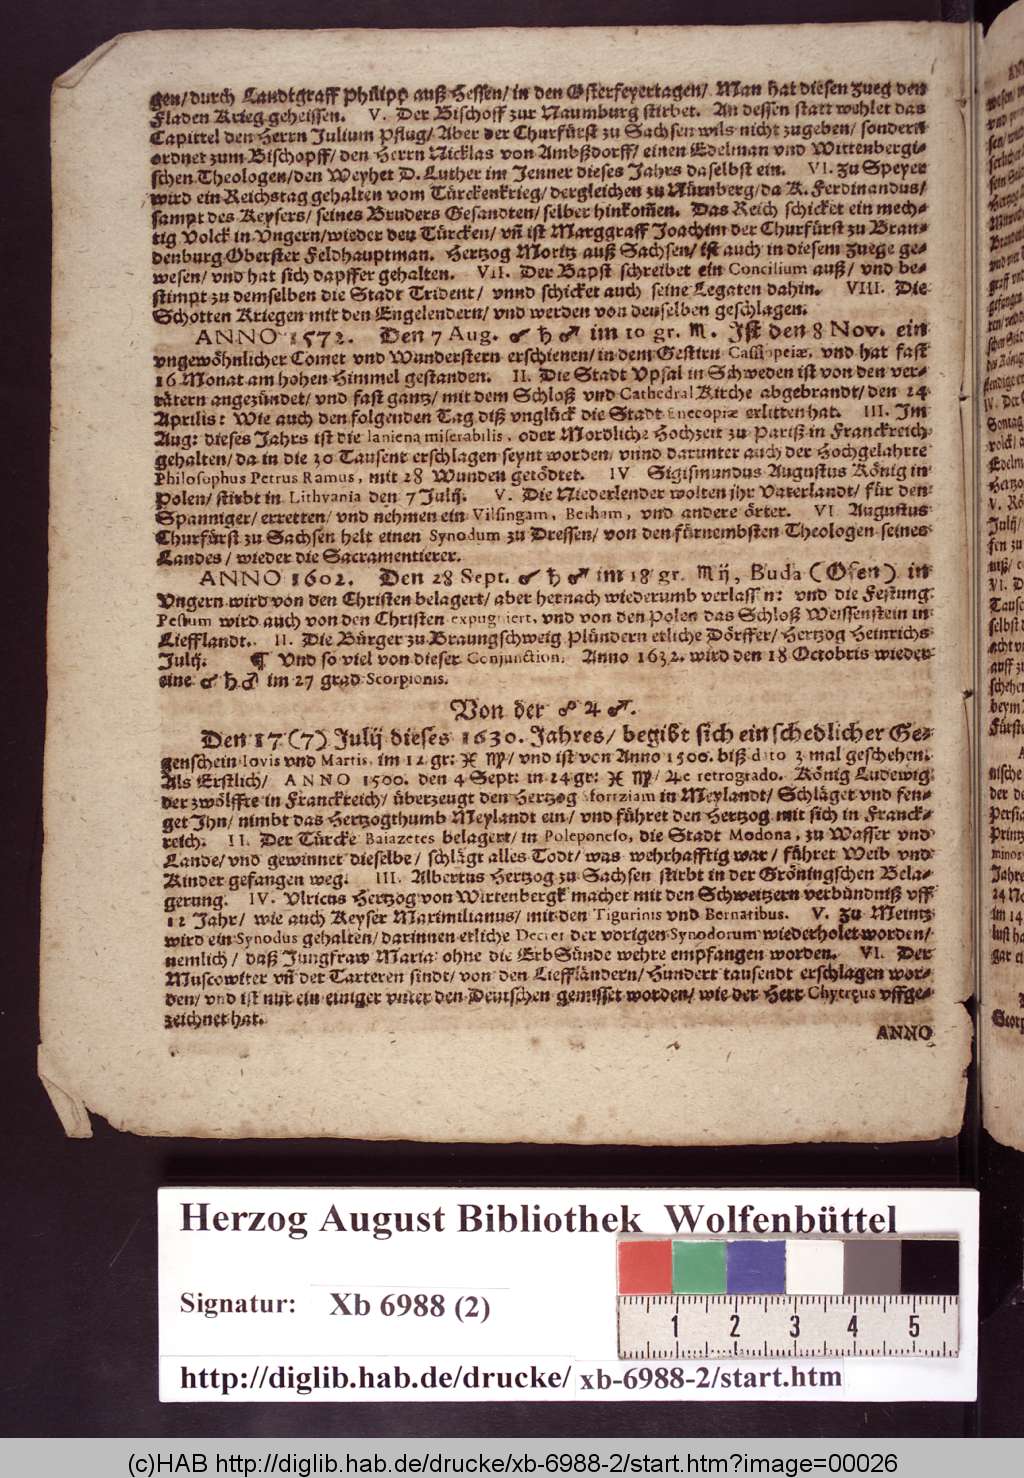 gen/ durch Landtgraff Philipp auß Hessen/ in den Osterfeyertagen/ Man hat diesen zueg den
Fladen Krieg geheissen. V. Der Bischoff zur Naumburg stirbet. An dessen statt wehlet das
Capittel den Herrn Julium Pflug/ Aber der Churfürst zu Sachsen wils nicht zugeben/ sondern
ordnet zum Bischopff/ den Herrn Nicklas von Ambßdorff/ einen Edelman vnd Wittenbergi-
schen Theologen/ den Weyhet D. Luther im Jenner dieses Jahrs daselbst ein. VI. zu Speyer
wird ein Reichstag gehalten vom Türckenkrieg/ dergleichen zu Nürnberg/ da K. Ferdinandus/
sampt des Keysers/ seines Bruders Gesandten/ selber hinkom̃en. Das Reich schicket ein mech-
tig Volck in Vngern/ wieder den Türcken/ vñ ist Marggraff Joachim der Churfürst zu Bran-
denburg Oberster Feldhauptman. Hertzog Moritz auß Sachsen/ ist auch in diesem zuege ge-
wesen/ vnd hat sich dapffer gehalten. VII. Der Bapst schreibet ein Concilium auß/ vnd be-
stimpt zu demselben die Stadt Trident/ vnnd schicket auch seine Legaten dahin. VIII. Die
Schotten Kriegen mit den Engelendern/ vnd werden von denselben geschlagen.
ANNO 1572. Den 7 Aug. ☌ ♄ ♂ im 10 gr. ♏. Ist den 8 Nov. ein
vngewöhnlicher Comet vnd Wunderstern erschienen/ in dem Gestirn Cassiopeiæ, vnd hat fast
16 Monat am hohen Himmel gestanden. II. Die Stadt Vpsal in Schweden ist von den ver-
rätern angezündet/ vnd fast gantz/ mit dem Schloß vnd Cathedral Kirche abgebrandt/ den 24
Aprilis: Wie auch den folgenden Tag diß vnglück die Stadt Enecopiæ erlitten hat. III. Im
Aug: dieses Jahrs ist die laniena miserabilis, oder Mordliche Hochzeit zu Pariß in Franckreich
gehalten/ da in die 30 Tausent erschlagen seynt worden/ vnnd darunter auch der Hochgelahrte
Philosophus Petrus Ramus, mit 28 Wunden getödtet. IV Sigismundus Augustus König in
Polen/ stirbt in Lithvania den 7 Julij. V. Die Niederlender wolten ihr Vaterlandt/ für den
Spanniger/ erretten/ vnd nehmen ein Vlissingam, Bertham, vnd andere örter. VI Augustus
Churfürst zu Sachsen helt einen Synodum zu Dressen/ von den fürnembsten Theologen seines
Landes/ wieder die Sacramentierer.
ANNO 1602. Den 28 Sept. ☌ ♄ ♂ im 18 gr. ♏ij, Buda (Ofen) in
Vngern wird von den Christen belagert/ aber hernach wiederumb verlassen: vnd die Festung
Pestum wird auch von den Christen expugniert, vnd von den Polen das Schloß Weissenstein in
Liefflandt. II. Die Bürger zu Braungschweig Plündern etliche Dörffer/ Hertzog Heinrichs
Julij. ¶ Vnd so viel von dieser Conjunction. Anno 1632. wird den 18 Octobris wieder
eine ☌ ♄ ♂ im 27 grad Scorpionis.
Von der ☍ ♃ ♂.
Den 17 (7) Julij dieses 1630. Jahres/ begibt sich ein schedlicher Ge-
genschein Iovis vnd Martis, im 12 gr: ♓ ♍/ vnd ist von Anno 1500. biß dito 3 mal geschehen.
Als Erstlich/ ANNO 1500. den 4 Sept: in 24 gr: ♓ ♍/ ♃e retrogrado. König Ludewig
der zwölffte in Franckreich/ überzeugt den Hertzog Sfortziam in Meylandt/ Schläget vnd fen-
get Ihn/ nimbt das Hertzogthumb Meylandt ein/ vnd führet den Hertzog mit sich in Franck-
reich. II. Der Türcke Baiazetes belagert/ in Poleponeso, die Stadt Modona, zu Wasser vnd
Lande/ vnd gewinnet dieselbe/ schlägt alles Todt/ was wehrhafftig war/ führet Weib vnd
Kinder gefangen weg. III. Albertus Hertzog zu Sachsen stirbt in der Gröningschen Bela-
gerung. IV. Vlricus Hertzog von Wirtenbergk machet mit den Schweitzern verbündniß vff
12 Jahr/ wie auch Keyser Maximilianus/ mit den Tigurinis vnd Bernatibus. V. zu Meintz
wird ein Synodus gehalten/ darinnen etliche Decret der vorigen Synodorum wiederholet worden/
nemlich/ daß Jungfraw Maria ohne die ErbSünde wehre empfangen worden. VI. Der
Muscowiter vñ der Tarteren sindt/ von den Liefländern/ Hundert tausendt erschlagen wor-
den/ vnd ist nur ein einiger vnter den Deutschen gemisset worden/ wie der Herr Chytręus vffge-
zeichnet hat.
ANNO
Herzog August Bibliothek Wolfenbüttel
Signatur: Xb 6988 (2)
1 2 3 4 5
http://diglib.hab.de/drucke/ xb-6988-2/start.htm
(c)HAB http://diglib.hab.de/drucke/xb-6988-2/start.htm?image=00026